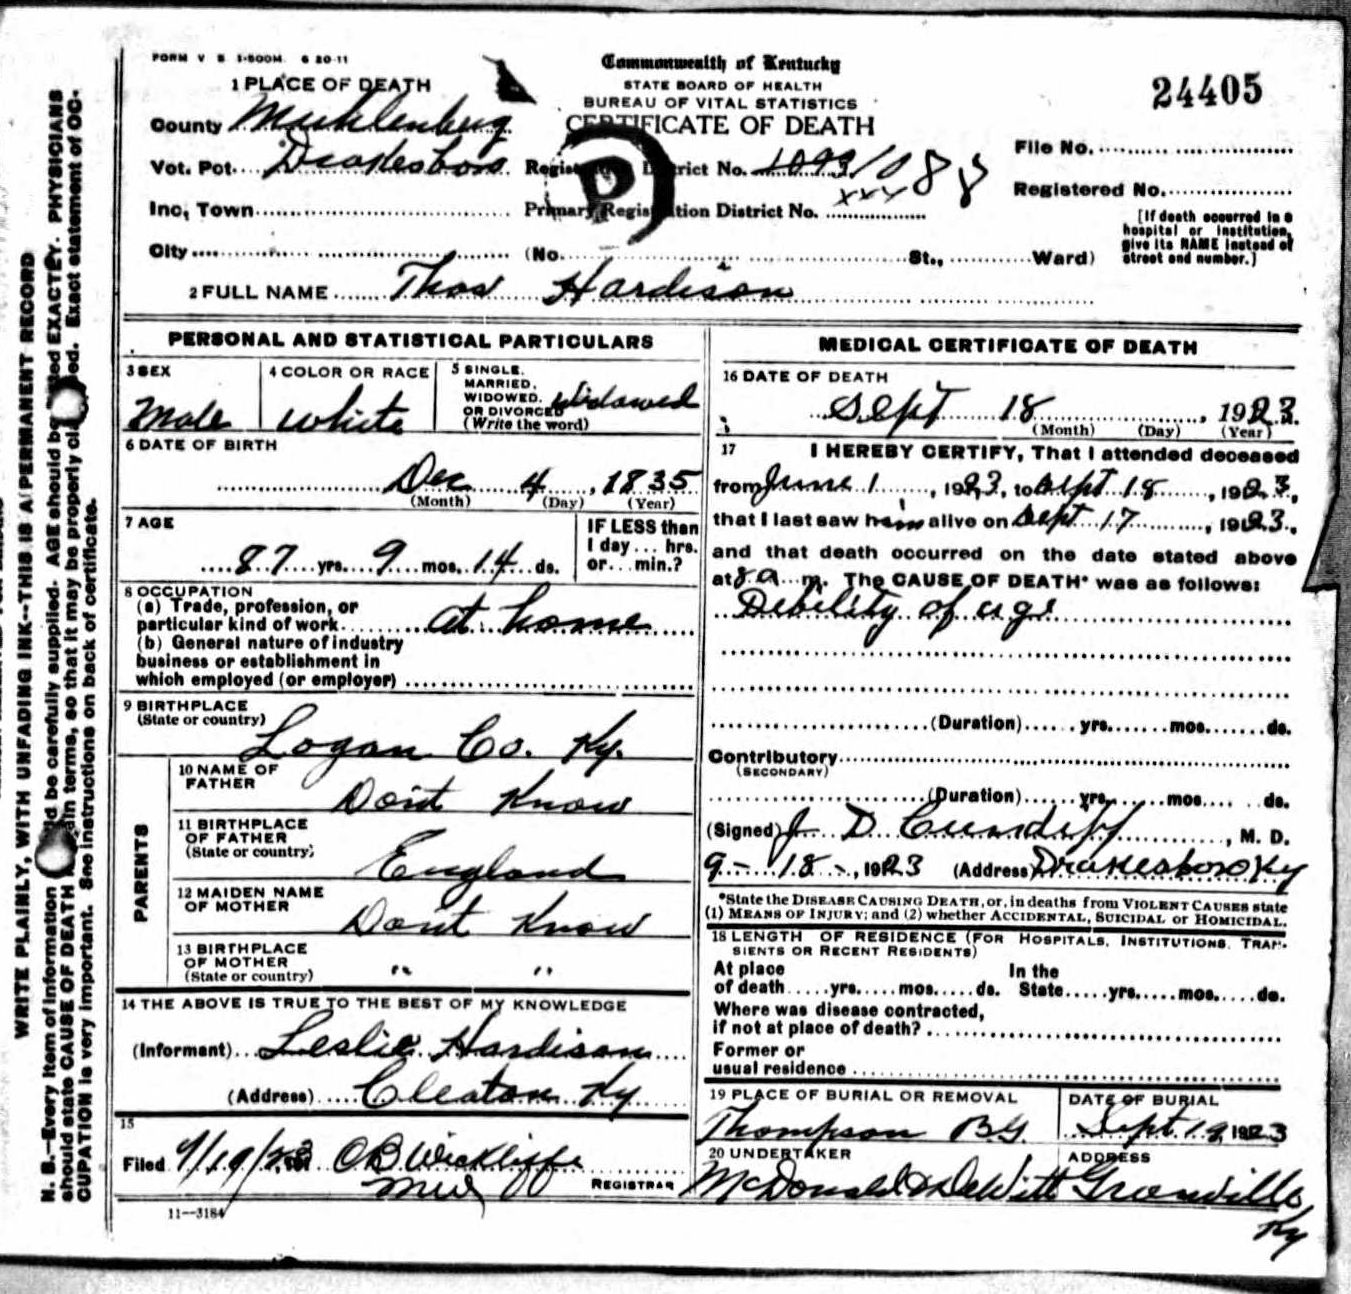 FORM V S 1-500M. 6 20-11
Commonwealth of Kentucky
STATE BOARD OF HEALTH
BUREAU OF VITAL STATISTICS
CERTIFICATE OF DEATH
24405
1 PLACE OF DEATH
County Muhlenburg
Vot. Pct. Drakesboro Registration District No. 1099 1088
xxx
Inc, Town Primary Registration District No.
City (No. St., Ward)
File No.
Registered No.
[If death occurred in a
hospital or institution,
give its NAME instead of
street and number.)
2 FULL NAME Thos Hardison
PERSONAL AND STATISTICAL PARTICULARS
3 SEX
Male
4 COLOR OR RACE
white
5 SINGLE.
MARRIED.
WIDOWED. Widowed
OR DIVORCED
(Write the word)
6 DATE OF BIRTH
Dec 4, 1835
(Month) (Day) (Year)
7 AGE
87 yrs. 9 mos. 14 ds.
IF LESS than
1 day... hrs.
or... min.?
8 OCCUPATION
(a) Trade, profession, or
particular kind of work at home
(b) General nature of industry
business or establishment in
which employed (or employer)
9 BIRTHPLACE
(State or country)
Logan Co. Ky.
PARENTS
10 NAME OF
FATHER
Dont Know
11 BIRTHPLACE
OF FATHER
(State or country)
England
12 MAIDEN NAME
OF MOTHER
Dont Know
13 BIRTHPLACE
OF MOTHER
(State or country) " "
14 THE ABOVE IS TRUE TO THE BEST OF MY KNOWLEDGE
(Informant) Leslie Hardison
(Address) Cleaton Ky
15
Filed 9/19/23 O B Wickliffe
REGISTRAR
11--3184
MEDICAL CERTIFICATE OF DEATH
16 DATE OF DEATH
Sept 18, 1923
(Month) (Day) (Year)
17 I HEREBY CERTIFY, That I attended deceased
from June 1, 1923, to Sept 18, 1923,
that I last saw him alive on Sept 17, 1923,
and that death occurred on the date stated above
at 8 a m. The CAUSE OF DEATH* was as follows:
Debility of age
(Duration) yrs. mos. ds.
Contributory
(SECONDARY)
(Duration) yrs. mos. ds.
(Signed) J D Cundiff, M. D.
9-18-, 1923 (Address) Drakesboro Ky
*State the DISEASE CAUSING DEATH, or, in deaths from VIOLENT CAUSES state
(1) MEANS OF INJURY; and (2) whether ACCIDENTAL, SUICIDAL or HOMICIDAL.
18 LENGTH OF RESIDENCE (FOR HOSPITALS, INSTITUTIONS, TRAN-
SIENTS OR RECENT RESIDENTS)
At place In the
of death yrs. mos. ds. State yrs. mos. ds.
Where was disease contracted,
if not at place of death?
Former or
usual residence
19 PLACE OF BURIAL OR REMOVAL
Thompson B G.
DATE OF BURIAL
Sept 19, 1923
20 UNDERTAKER
McDonald & DeWitt
ADDRESS
Greenville
Ky
WRITE PLAINLY, WITH UNFADING INK--THIS IS A PERMANENT RECORD
N. B.--Every item of information should be carefully supplied. AGE should be stated EXACTLY. PHYSICIANS
should state CAUSE OF DEATH in plain terms, so that it may be properly classified. Exact statement of OC-
CUPATION is very important. See instructions on back of certificate.